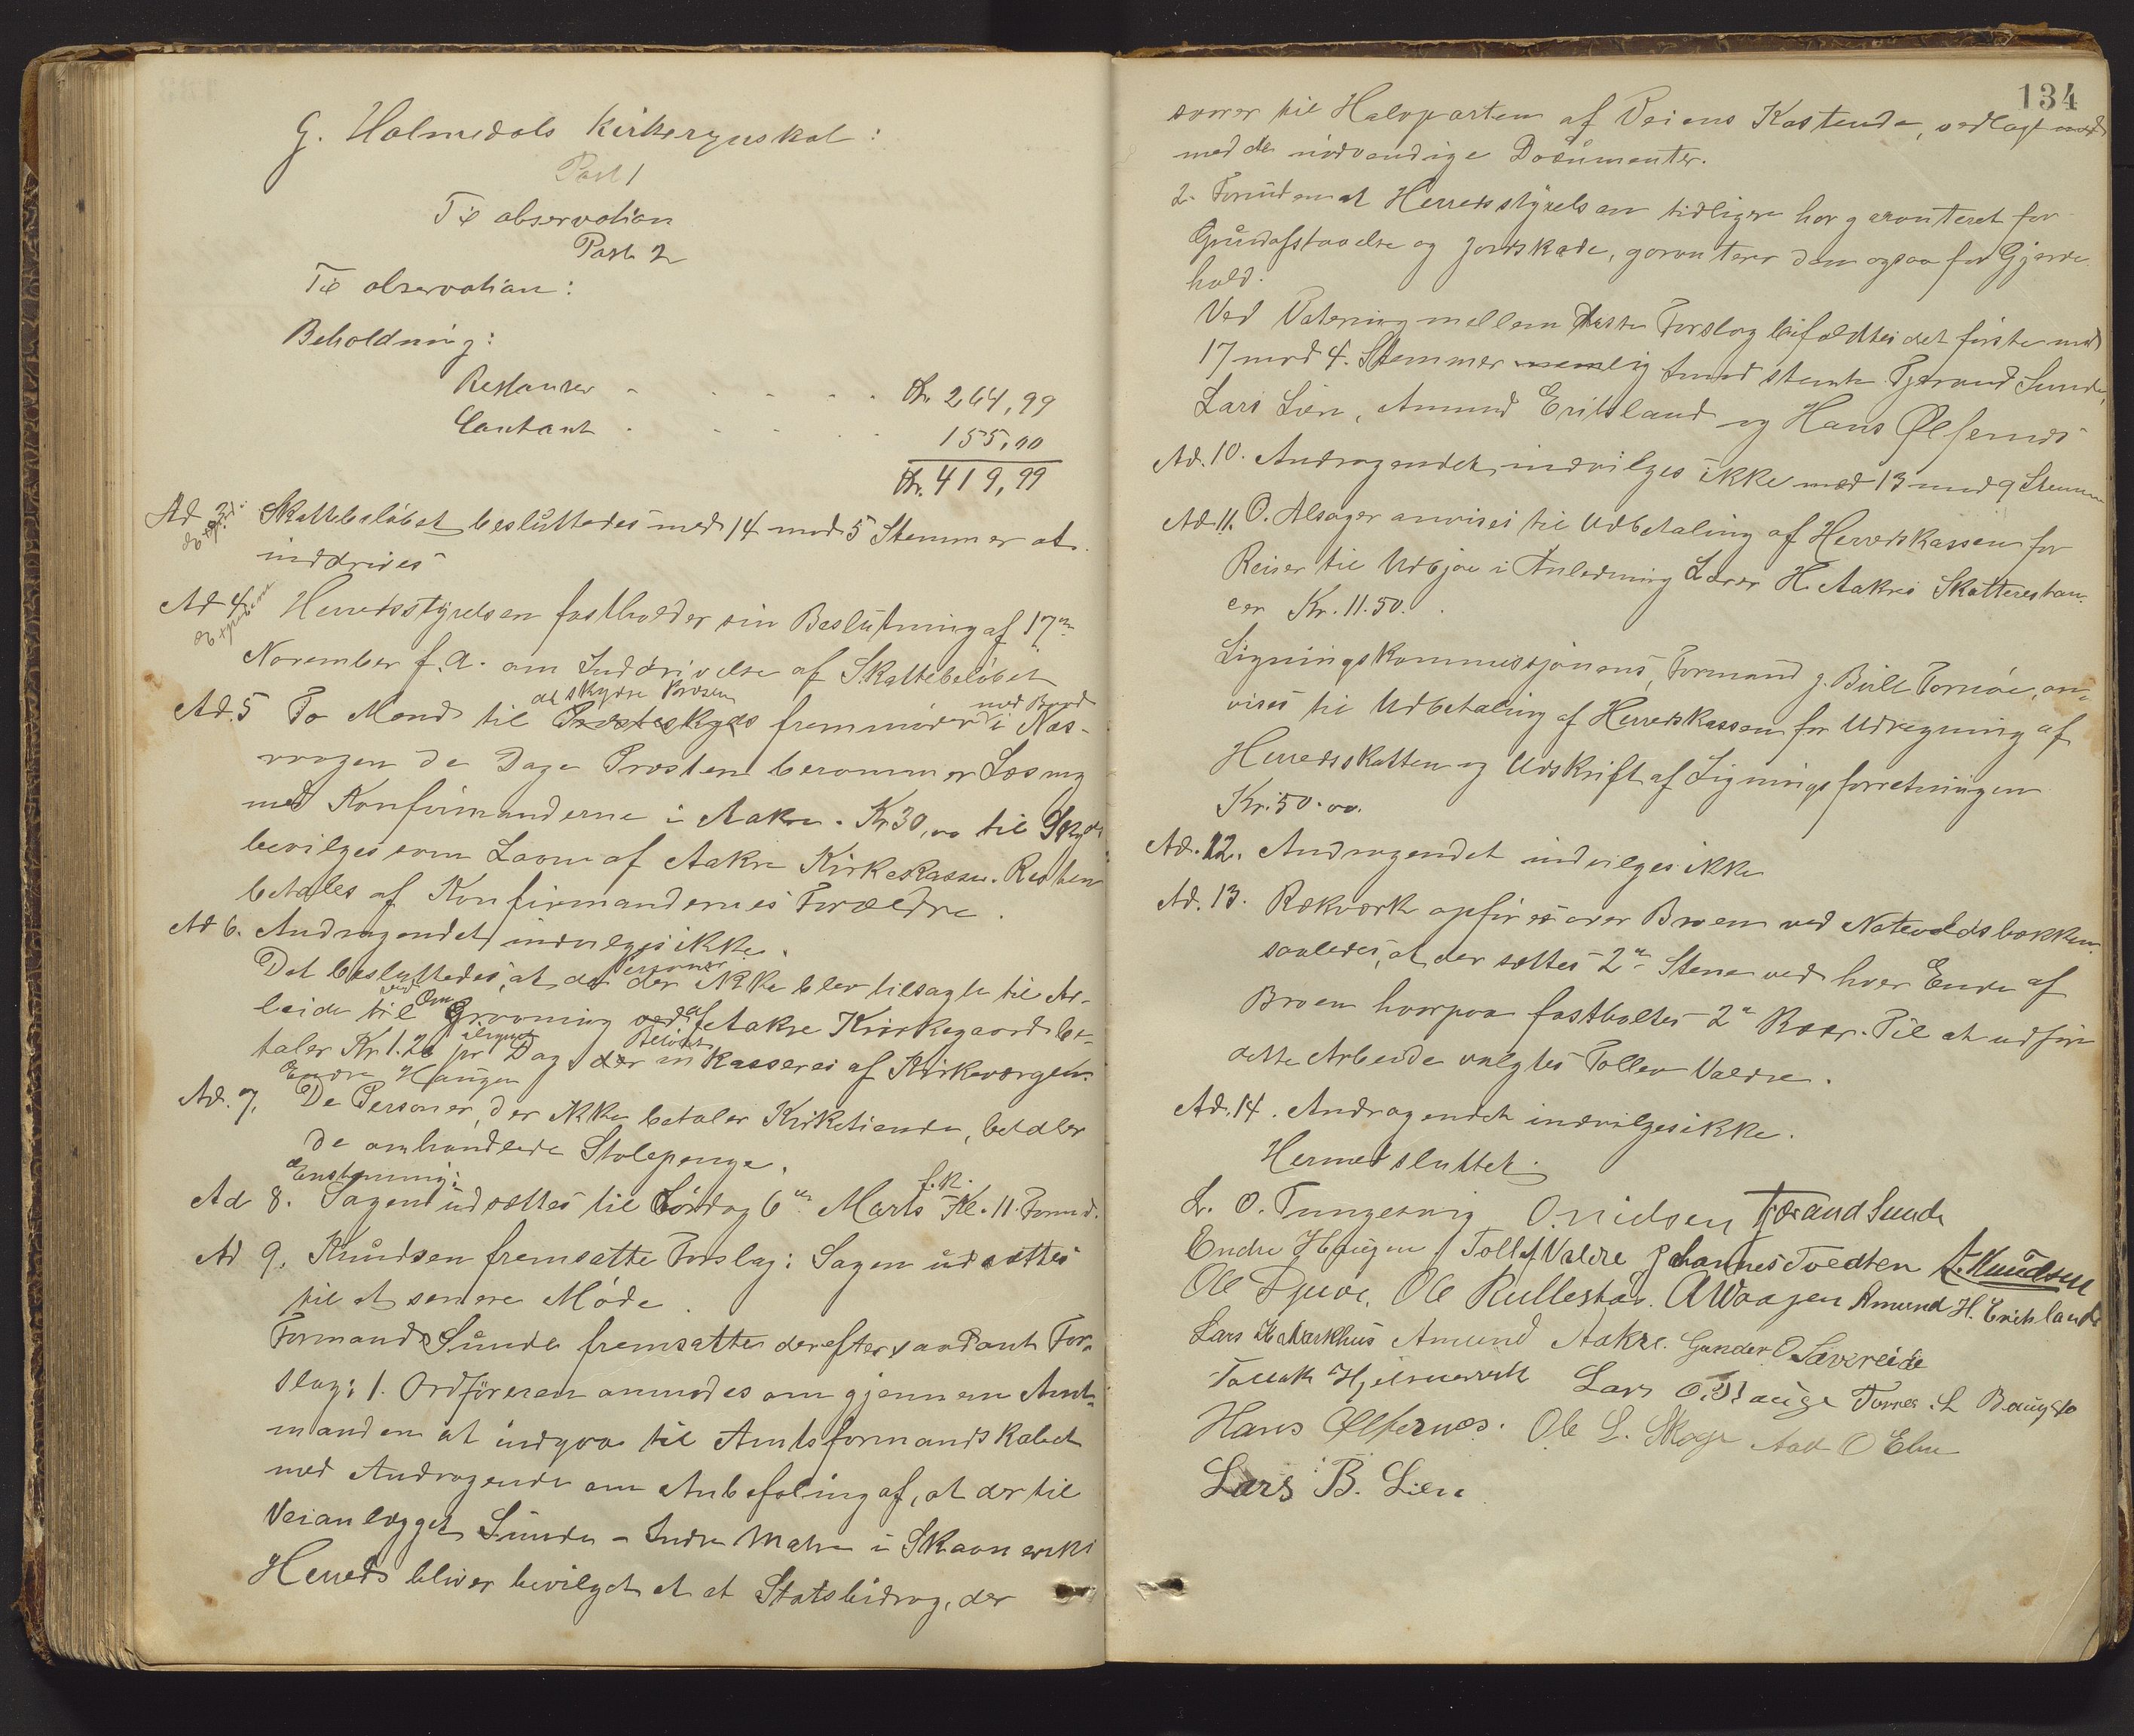 G. Holmedals Kirkeregnskab:
Post 1
Til observation
Post 2
Til observation:
Beholdning:
Restancer - . . . . Kr. 264,99
Contant . - . . 155,00
Kr. 419,99
Ad 3. Skattebeløbet besluttedes med 14 mod 5 Stemmer at
inddrives
Ad 4. Herredsstyrelsen fastholder sin Beslutning af 17de
November f.A. om Inddrivelse af Skattebeløbet
at skydse Præsten
med Baad
Ad. 5 To Mænd til Præsteskyds fremmøder i Næs-
vaagen de Dage Præsten berammer Læsning
med Konfirmanderne i Aakre. Kr 30,00 til Skyds
bevilges som Laan af Aakre Kirkekasse. Resten
betales af Konfirmandernes Forældre.
Ad 6. Andragendet indvilges ikke.
Personer
Det besluttedes, at de der ikke blev tilsagte til Ar-
ved Om
beide til Gravning ved af Aakre Kirkegaard be-
ilignet Beløbet
taler Kr 1.20 pr Dag der inkasseres af Kirkeværgen
Endre Haugen
Ad. 7. De Personer, der ikke betaler Kirketiende, betaler
de omhandlede Stolepenge.
Enstemmig:
f.K.
Ad 8. Sagen udsættes til Lørdag 6te Marts Kl. 11. Formd.
Ad 9. Knudsen fremsatte Forslag: Sagen udsættes
til et senere Møde.
Formand Sunde fremsatte derefter saadant For-
slag: 1. Ordføreren anmodes om gjennem Amt-
manden at indgaa til Amtsformandskabet
med Andragende om Anbefaling af, at der til
Veianlægget Sunde - Indre Matre i Skaanevik
Herred bliver bevilget et at Statsbidrag, der
134
svarer til Halvparten af Veiens Kostende, vedlagt med
med de nødvendige Documenter.
2. Foruden at Herredsstyrelsen tidligere har garanteret for
Grundafstaaelse og Jordskade, garanterer den ogsaa for Gjerde-
hold.
Ved Votering mellem disse Forslag bifaldtes det første med
17 mod 4. Stemmer nemlig imod stemte Tjerand Sunde,
Lars Lien, Amund Eriksland og Hans Ølfernes
Ad. 10. Andragendet indvilges ikke med 13 mod 9 Stemmer
Ad. 11. O. Alsager anvises til Udbetaling af Herredskassen for
Reiser til Utbjoe i Anledning Lærer H. Aakres Skatterestan-
cer Kr. 11.50.
Ligningskommissjonens Formand J. Bull Tornøe, an-
vises til Udbetaling af Herredskassen for Udregning af
Herredsskatten og Udskrift af Ligningsforretningen
Kr. 50.00.
Ad. 12. Andragendet indvilges ikke
Ad. 13. Rækværk opføres over Broen ved Notevoldsbækken
saaledes, at der sættes 2de Stene ved hver Ende af
Broen hvorpaa fastboltes 2de Ræer. Til at udføre
dette Arbeide valgtes Tollev Valdre.
Ad. 14. Andragendet indvilges ikke.
Hermed sluttet.
L. O. Tungesvig O. Nielsen Tjerand Sunde
Endre Haugen Tollef Valdre Johannes Tvedten A. Knudsen
Ole Djuve. Ole Rullestad. A Waagen Amund H. Erichsland
Lars H Markhus Amund Aakre. Gunder O. Sævereide
Tollak Hjelmervik Lars O. Hauge Tørres L Baugsto
Hans Ølfernes. Ole L. Skoge Aad O Ebne
Lars B. Lien